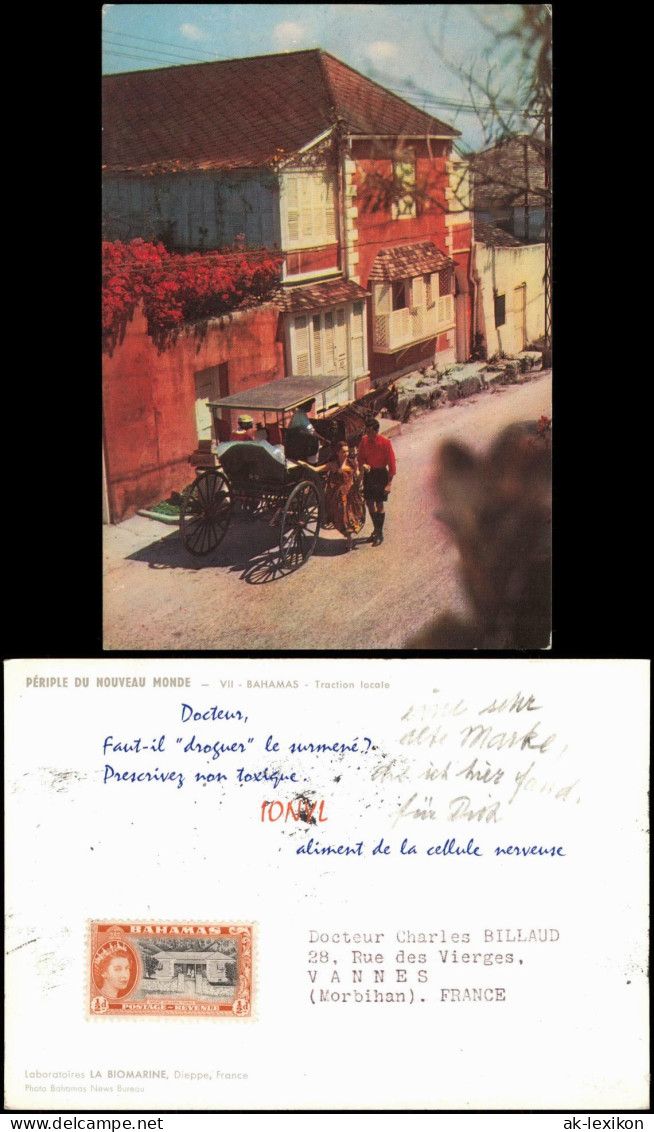 PÉRIPLE DU NOUVEAU MONDE — VII - BAHAMAS - Traction locale
Docteur,
Faut-il "droguer" le surmené.?
Prescrivez non toxique.
IONYL
aliment de la cellule nerveuse
eine sehr
alte Marke,
die ich hier fand.
für Dich
BAHAMAS
½d
½d
POSTAGE REVENUE
Docteur Charles BILLAUD
28, Rue des Vierges,
VANNES
(Morbihan). FRANCE
Laboratoires LA BIOMARINE, Dieppe, France
Photo Bahamas News Bureau
ak-lexikon.com